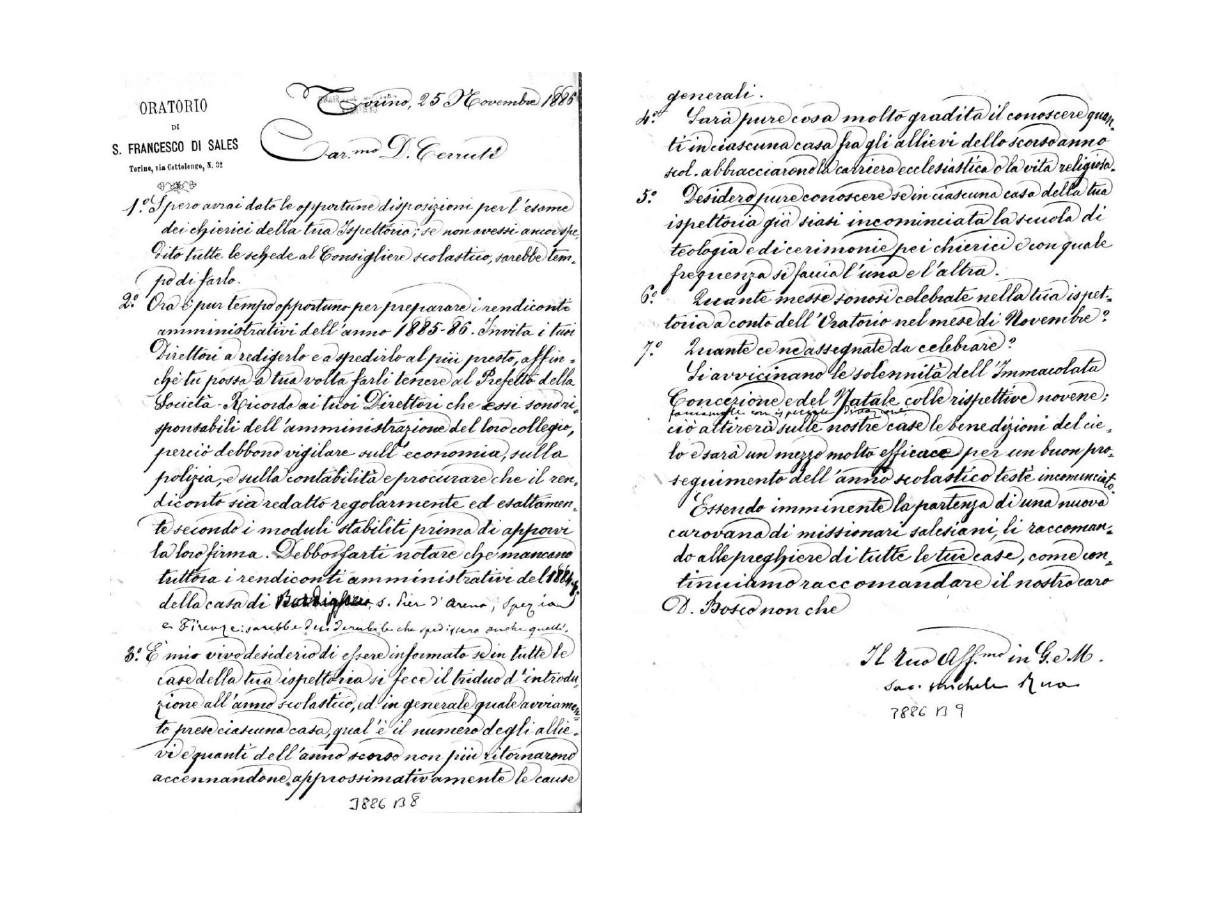 ORATORIO
DI
S. FRANCESCO DI SALES
Torino, via Cottolengo, N. 32
Torino, 25 Novembre 1886
Car.mo D. Cerruti
1.° Spero avrai dato le opportune disposizioni per l'esame
dei chierici della tua Ispettoria; se non avessi ancor spe-
dito tutte le schede al Consigliere scolastico, sarebbe tem-
po di farlo.
2.° Ora è pur tempo opportuno per preparare i rendiconti
amministrativi dell'anno 1885-86. Invita i tuoi
Direttori a redigerlo e a spedirlo al più presto, affin-
chè tu possa a tua volta farli tenere al Prefetto della
Società. Ricorda ai tuoi Direttori che essi sono ri-
sponsabili dell'amministrazione del loro collegio,
perciò debbono vigilare sull'economia, sulla
polizia, e sulla contabilità e procurare che il ren-
diconto sia redatto regolarmente ed esattamen-
te secondo i moduli stabiliti prima di apporvi
la loro firma. Debbo farti notare che mancano
tuttora i rendiconti amministrativi del 1884-5
della casa di s. Pier d'Arena, Spezia
e Firenze: sarebbe desiderabile che spedissero anche quelli.
3.° È mio vivo desiderio di essere informato se in tutte le
case della tua ispettoria si fece il triduo d'introdu-
zione all'anno scolastico, ed in generale quale avviamen-
to prese ciascuna casa, qual'è il numero degli allie-
vi e quanti dell'anno scorso non più ritornarono
accennandone approssimativamente le cause
1886 B 8
generali.
4.° Sarà pure cosa molto gradita il conoscere quan-
ti in ciascuna casa fra gli allievi dello scorso anno
scol. abbracciarono la carriera ecclesiastica o la vita religiosa.
5.° Desidero pure conoscere se in ciascuna casa della tua
ispettoria già siasi incominciata la scuola di
teologia e di cerimonie pei chierici e con quale
frequenza si faccia l'una e l'altra.
6.° Quante messe sonosi celebrate nella tua ispet-
toria a conto dell'Oratorio nel mese di Novembre?
7.° Quante ce ne assegnate da celebrare?
Si avvicinano le solennità dell'Immacolata
Concezione e del Natale colle rispettive novene;
facciamole con ispeciale divozione
ciò attirerà sulle nostre case le benedizioni del cie-
lo e sarà un mezzo molto efficace per un buon pro-
seguimento dell'anno scolastico testè incominciato.
Essendo imminente la partenza di una nuova
carovana di missionari salesiani, li raccoman-
do alle preghiere di tutte le tue case, come con-
tinuiamo raccomandare il nostro caro
D. Bosco non che
Il tuo Aff.mo in G. e M.
Sac. Michele Rua
1886 B 9